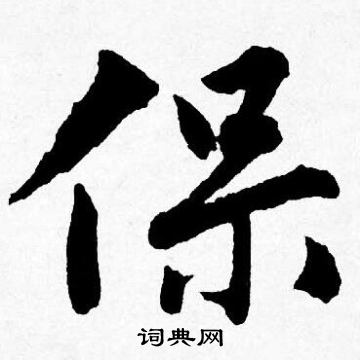 保
词典网